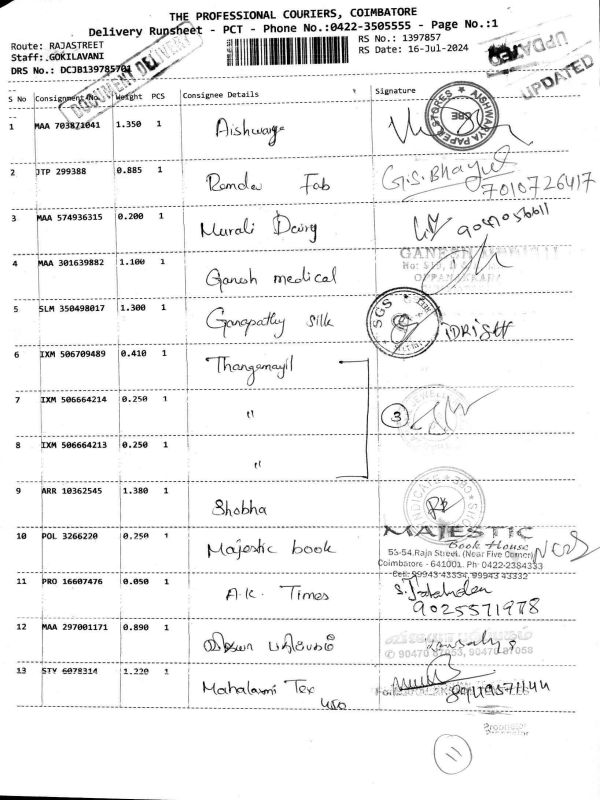 THE PROFESSIONAL COURIERS, COIMBATORE
Delivery Runsheet - PCT - Phone No.:0422-3505555 - Page No.:1
Route: RAJASTREET
RS No.: 1397857
Staff: GOKILAVANI
RS Date: 16-Jul-2024
DRS No.: DCJB139785701
DOCUMENT DELIVERY
UPDATED
UPDATED
S No Consignment No. Weight PCS Consignee Details Signature
1 MAA 703871041 1.350 1 Aishwarya
AISHWARYA PAPER STORES CBE
2 JTP 299388 0.885 1 Ramdev Fab G.S.Bhayul
7010726417
3 MAA 574936315 0.200 1 Murali Dairy
4 MAA 301639882 1.100 1 Ganesh medical
GANESH
5 SLM 350498017 1.300 1 Ganapathy silk SGS IDRISH
6 IXM 506709489 0.410 1 Thangamayil
7 IXM 506664214 0.250 1 " 3
8 IXM 506664213 0.250 1 "
9 ARR 10362545 1.380 1 Shobha
10 POL 3266220 0.250 1 Majestic book
MAJESTIC
Book House
53-54,Raja Street, (Near Five Corner)
Coimbatore - 641001. Ph: 0422-2384333
Cell: 99943 43334, 99943 43332
11 PRO 16607476 0.050 1 A.K. Times
9025571978
12 MAA 297001171 0.890 1 விஜயா பதிப்பகம்
90470 87058
13 STY 6078314 1.220 1 Mahalaxmi Tex
450
Proprietor
11